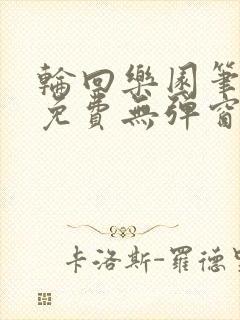 輪回樂園筆
免費無彈窗
卡洛斯-羅德里